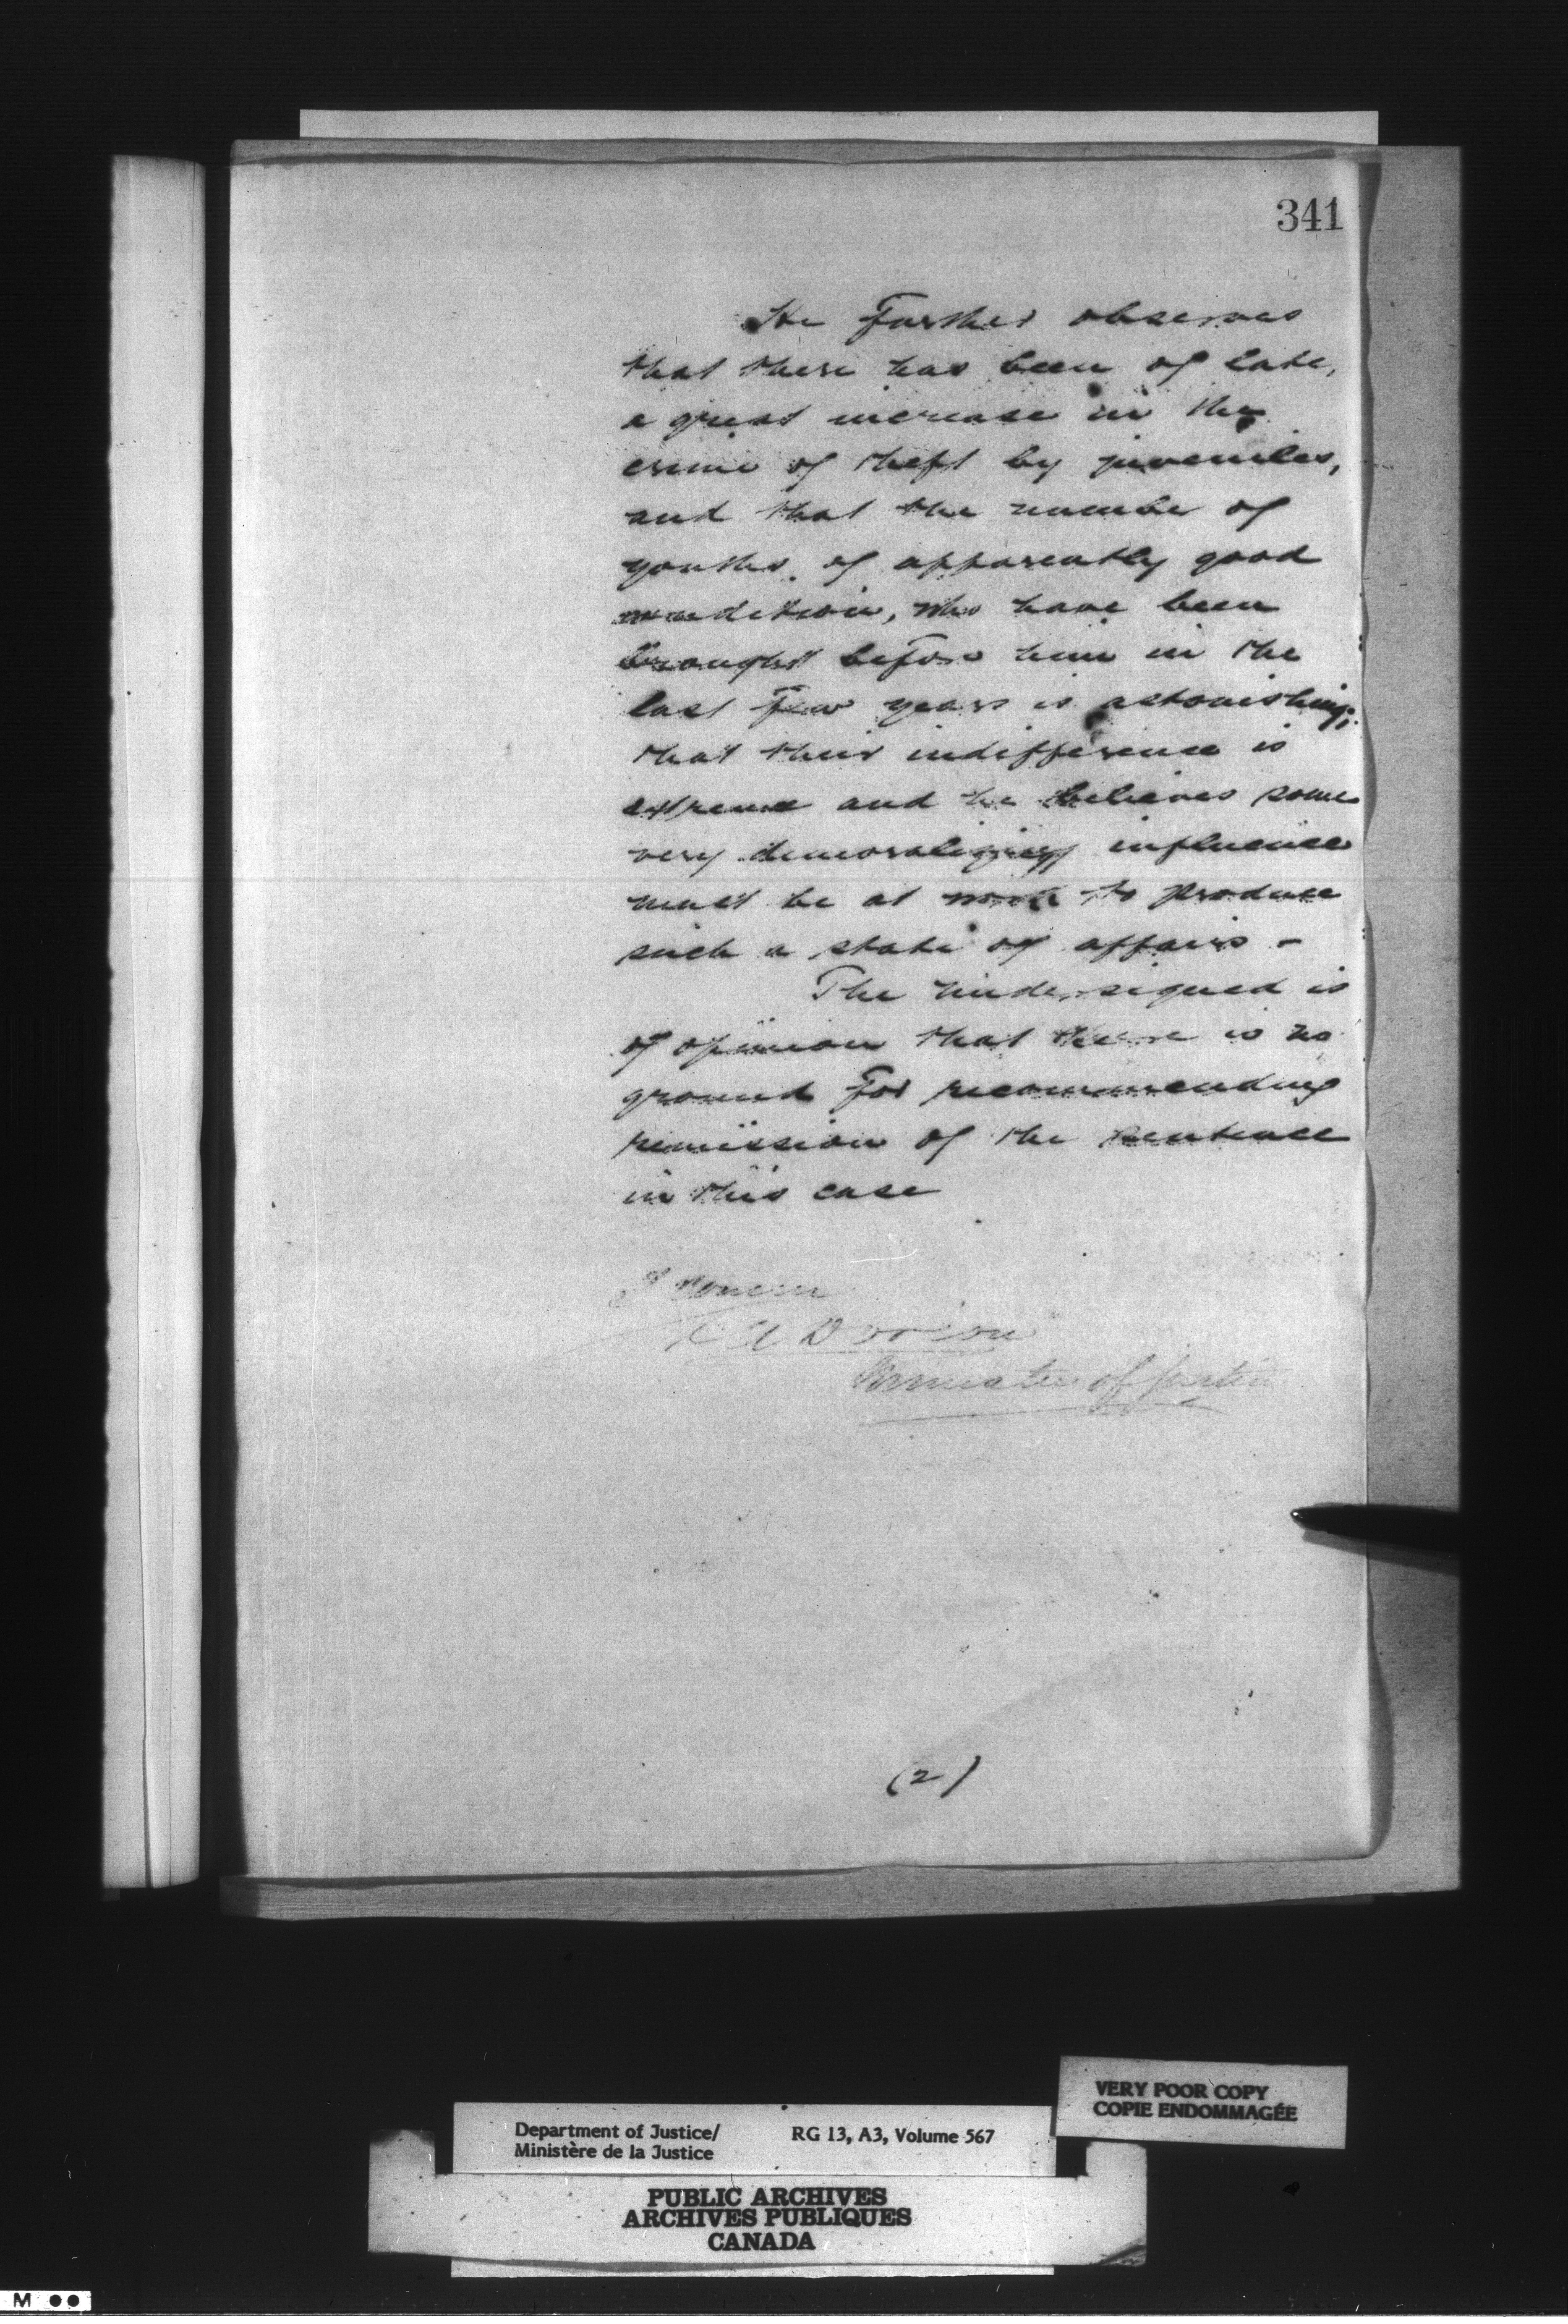 341
He further observes
that there has been of late,
a great increase in the
crime of theft by juveniles,
and that the number of
youths of apparently good
condition, who have been
brought before him in the
last few years is astonishing;
that their indifference is
extreme and he believes some
very demoralizing influence
must be at work to produce
such a state of affairs -
The undersigned is
of opinion that there is no
ground for recommending
remission of the sentence
in this case
I concur
A A Dorion
Minister of Justice
(2)
VERY POOR COPY
COPIE ENDOMMAGÉE
Department of Justice/ RG 13, A3, Volume 567
Ministère de la Justice
PUBLIC ARCHIVES
ARCHIVES PUBLIQUES
CANADA
M